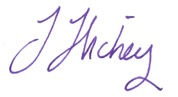 J Hickey